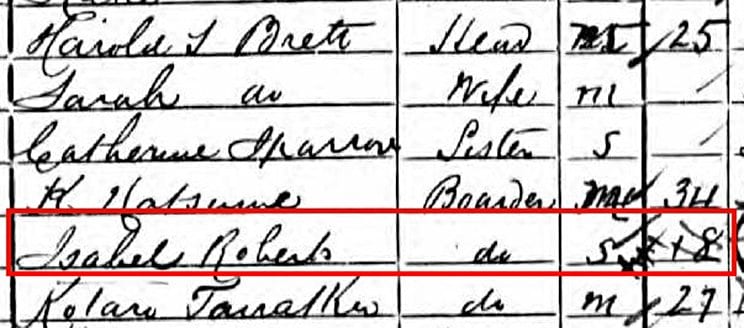 Harold S Brett Head m 25
Sarah do Wife m
Catherine Sparrow Sister S
K Natsume Boarder m 34
Isabel Roberts do S 18
Kotaro do m 27